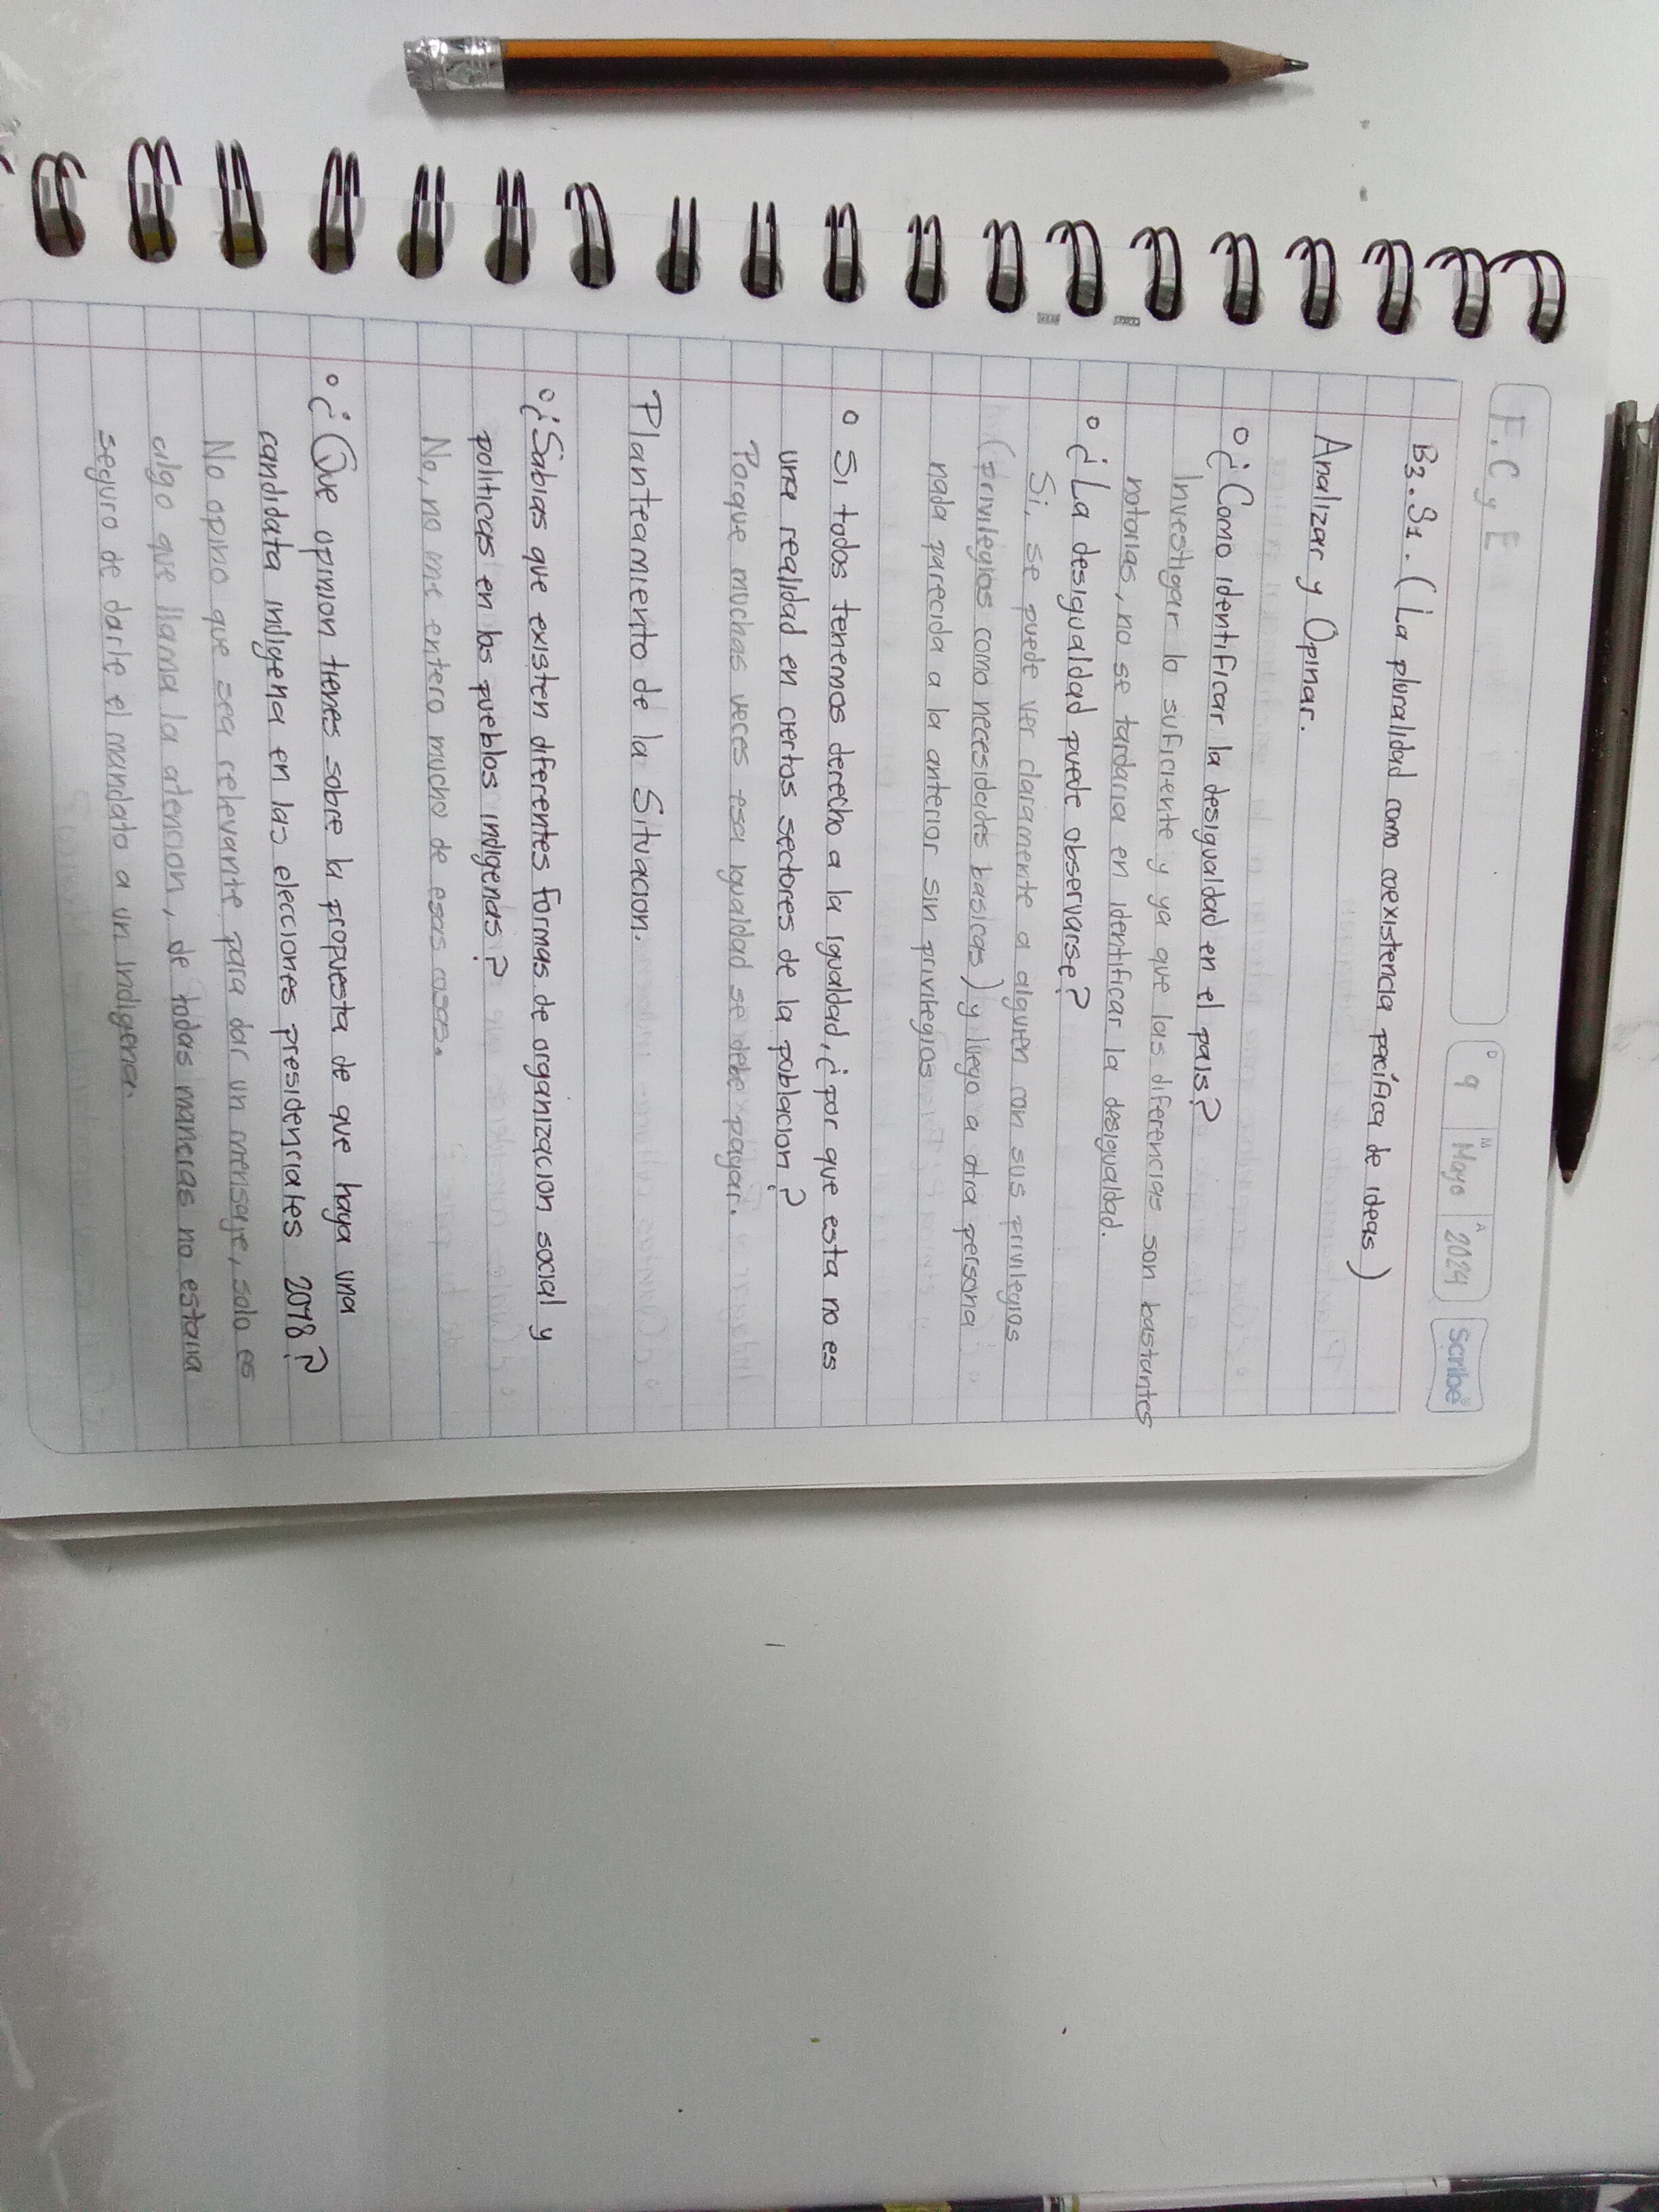 F. C y E
D 9 M Mayo A 2024 Scribe
B3.S1. (La pluralidad como coexistencia pacífica de ideas)
Analizar y Opinar.
° ¿Como identificar la desigualdad en el pais?
Investigar lo suficiente y ya que las diferencias son bastantes
notorias, no se tardaria en identificar la desigualdad.
° ¿La desigualdad puede observarse?
Si, se puede ver claramente a alguien con sus privilegios
(privilegios como necesidades basicas) y luego a otra persona
nada parecida a la anterior sin privilegios
° Si todos tenemos derecho a la igualdad, ¿por que esta no es
una realidad en ciertos sectores de la poblacion?
Porque muchas veces esa igualdad se debe pagar.
Planteamiento de la Situacion.
° ¿Sabias que existen diferentes formas de organizacion social y
politicas en los pueblos indigenas?
No, no me entero mucho de esas cosas.
° ¿Que opinion tienes sobre la propuesta de que haya una
candidata indigena en las elecciones presidenciales 2018?
No opino que sea relevante para dar un mensaje, solo es
algo que llama la atencion, de todas maneras no estaria
seguro de darle el mandato a un indigena.